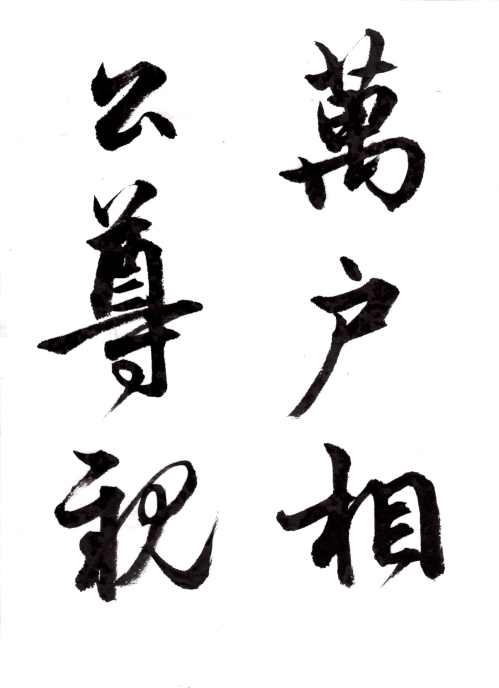 萬户相
公尊親